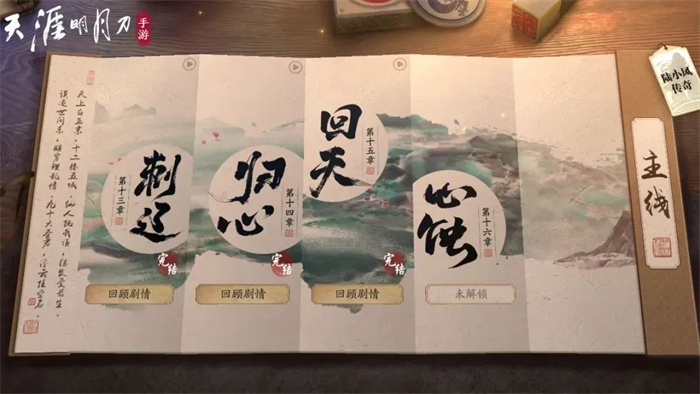 天涯明月刀
手游
陆小凤
传奇
主线
天上白玉京，十二楼五城。仙人抚我顶，结发受长生
误逐世间乐，颇穷理乱情。九十六圣君，浮云挂空名
第十三章
刺辽
完结
回顾剧情
第十四章
归心
完结
回顾剧情
第十五章
回天
完结
回顾剧情
第十六章
心蚀
未解锁